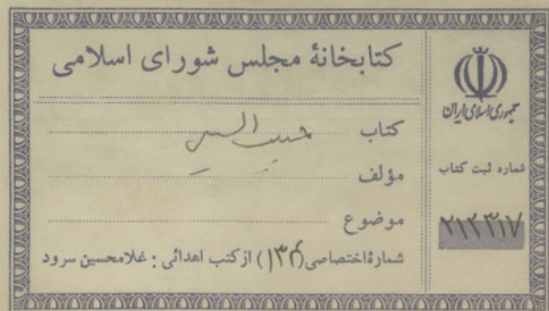 کتابخانهٔ مجلس شورای اسلامی
کتاب حبیب السیر
مؤلف
موضوع
شمارهٔ اختصاصی (۱۳۴) از کتب اهدائی : غلامحسین سرود
جمهوری اسلامی ایران
شماره ثبت کتاب
۲۱۲۳۱۷